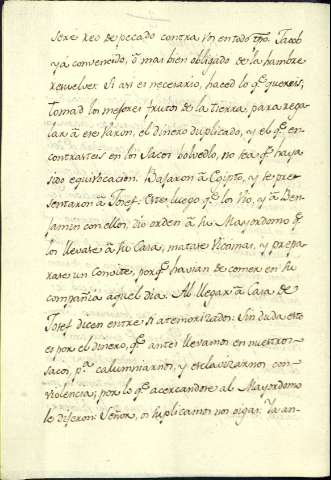 sere reo de pecado contra Vm en todo tpo. Jacob
ya convencido, ô mas bien obligado de la hambre
resuelve: Si asi es necesario, haced lo q.e quereis,
tomad los mejores frutos de la tierra, para rega-
lar â ese Varon, el dinero duplicado, y el q.e en-
contrasteis en los sacos bolvedlo, no sea q.e haya
sido equivocacion. Bajaron â Egipto, y se pre-
sentaron â Josef. Este, luego q.e los vio, y â Ben-
jamin con ellos, dio orden â su Mayordomo q.e
los llevase â su Casa, matase Victimas, y prepa-
rase un Convite, porq.e havian de comer en su
compañia aquel dia. Al llegar â Casa de
Josef dicen entre si atemorizados: Sin duda esto
es por el dinero, q.e antes llevamos en nuestros
sacos, p.a calumniarnos, y esclavizarnos con
violencia; por lo q.e acercandose al Mayordomo
le dijeron: Señor, os suplicamos nos oigas. Ya an-